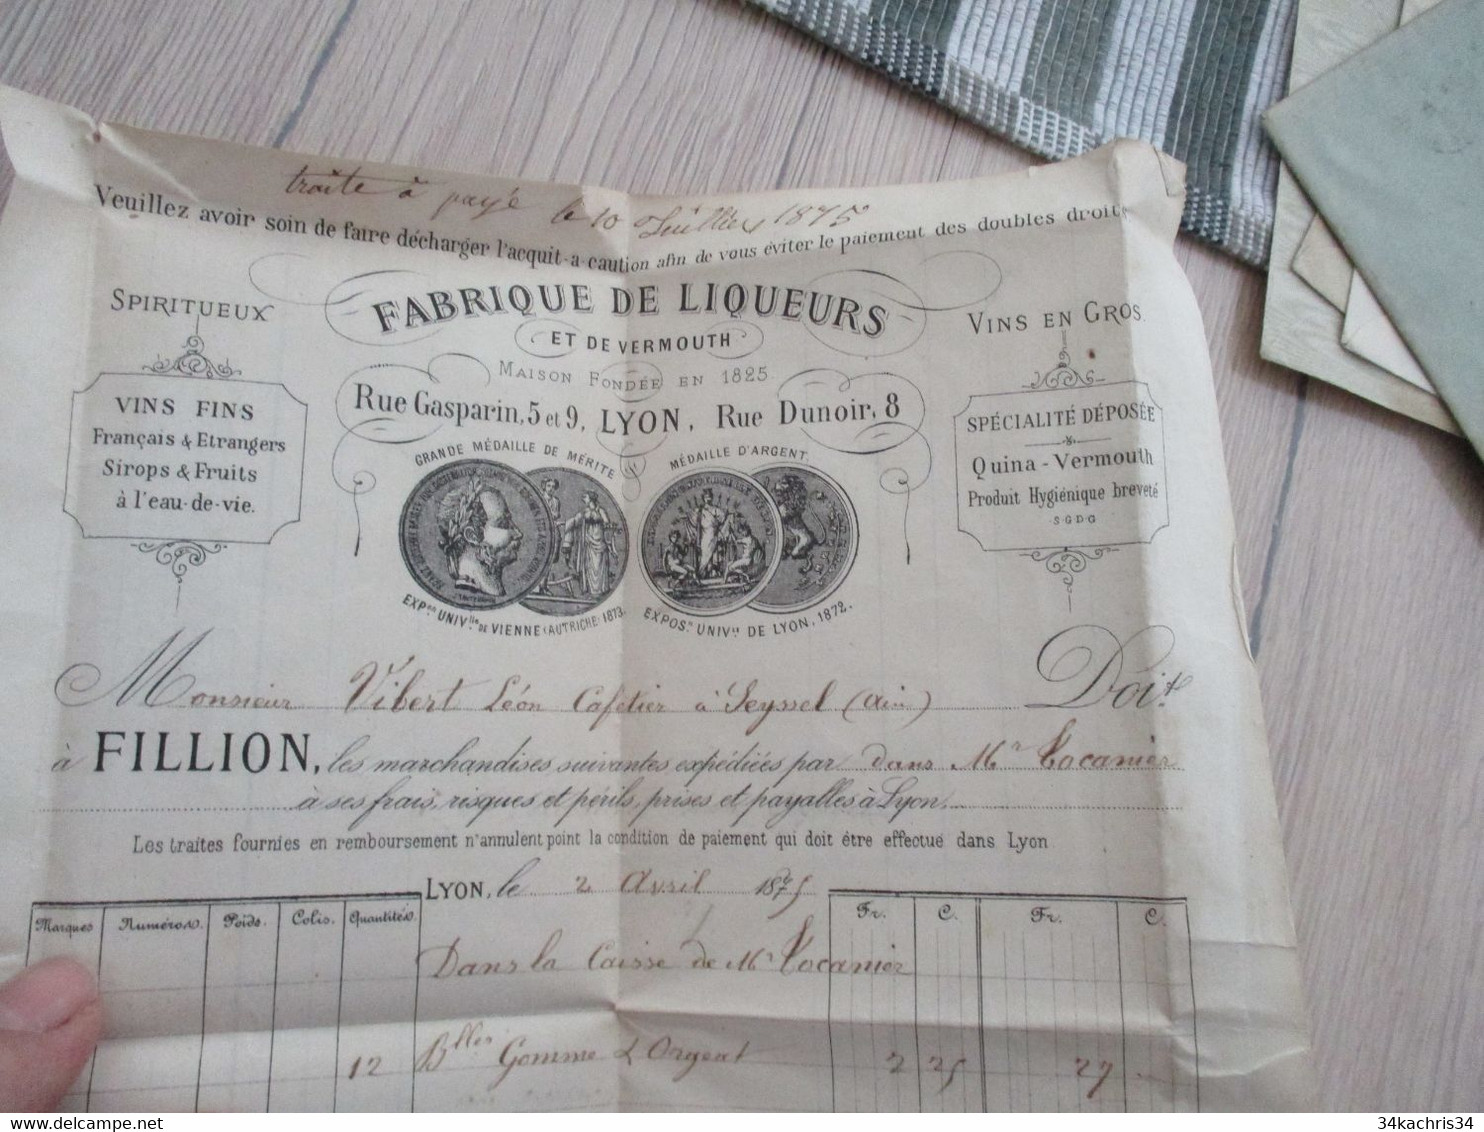 traite à payé le 10 Juillier 1875
Veuillez avoir soin de faire décharger l'acquit-a-caution afin de vous éviter le paiement des doubles droits
SPIRITUEUX
FABRIQUE DE LIQUEURS
VINS EN GROS.
ET DE VERMOUTH
MAISON FONDÉE EN 1825
Rue Gasparin, 5 et 9, LYON, Rue Dunoir, 8
VINS FINS
Français & Etrangers
Sirops & Fruits
à l'eau-de-vie.
SPÉCIALITÉ DÉPOSÉE
Quina-Vermouth
Produit Hygiénique breveté
S G D G
GRANDE MÉDAILLE DE MÉRITE
MÉDAILLE D'ARGENT.
EXPon UNIVlle DE VIENNE (AUTRICHE) 1873.
EXPOSn UNIVlle DE LYON, 1872.
Monsieur Vibert Léon Cafetier à Seyssel (Ain) Doit
à FILLION, les marchandises suivantes expédiées par dans Mr Tocanier
à ses frais, risques et périls, prises et payables à Lyon.
Les traites fournies en remboursement n'annulent point la condition de paiement qui doit être effectué dans Lyon
LYON, le 2 Avril 1875
Marques Numéros. Poids. Colis. Quantités. Fr. C. Fr. C.
Dans la Caisse de Mr Tocanier
12 Blles Gomme d'Orgeat 2 25 27
34kachris34
delcampe.net